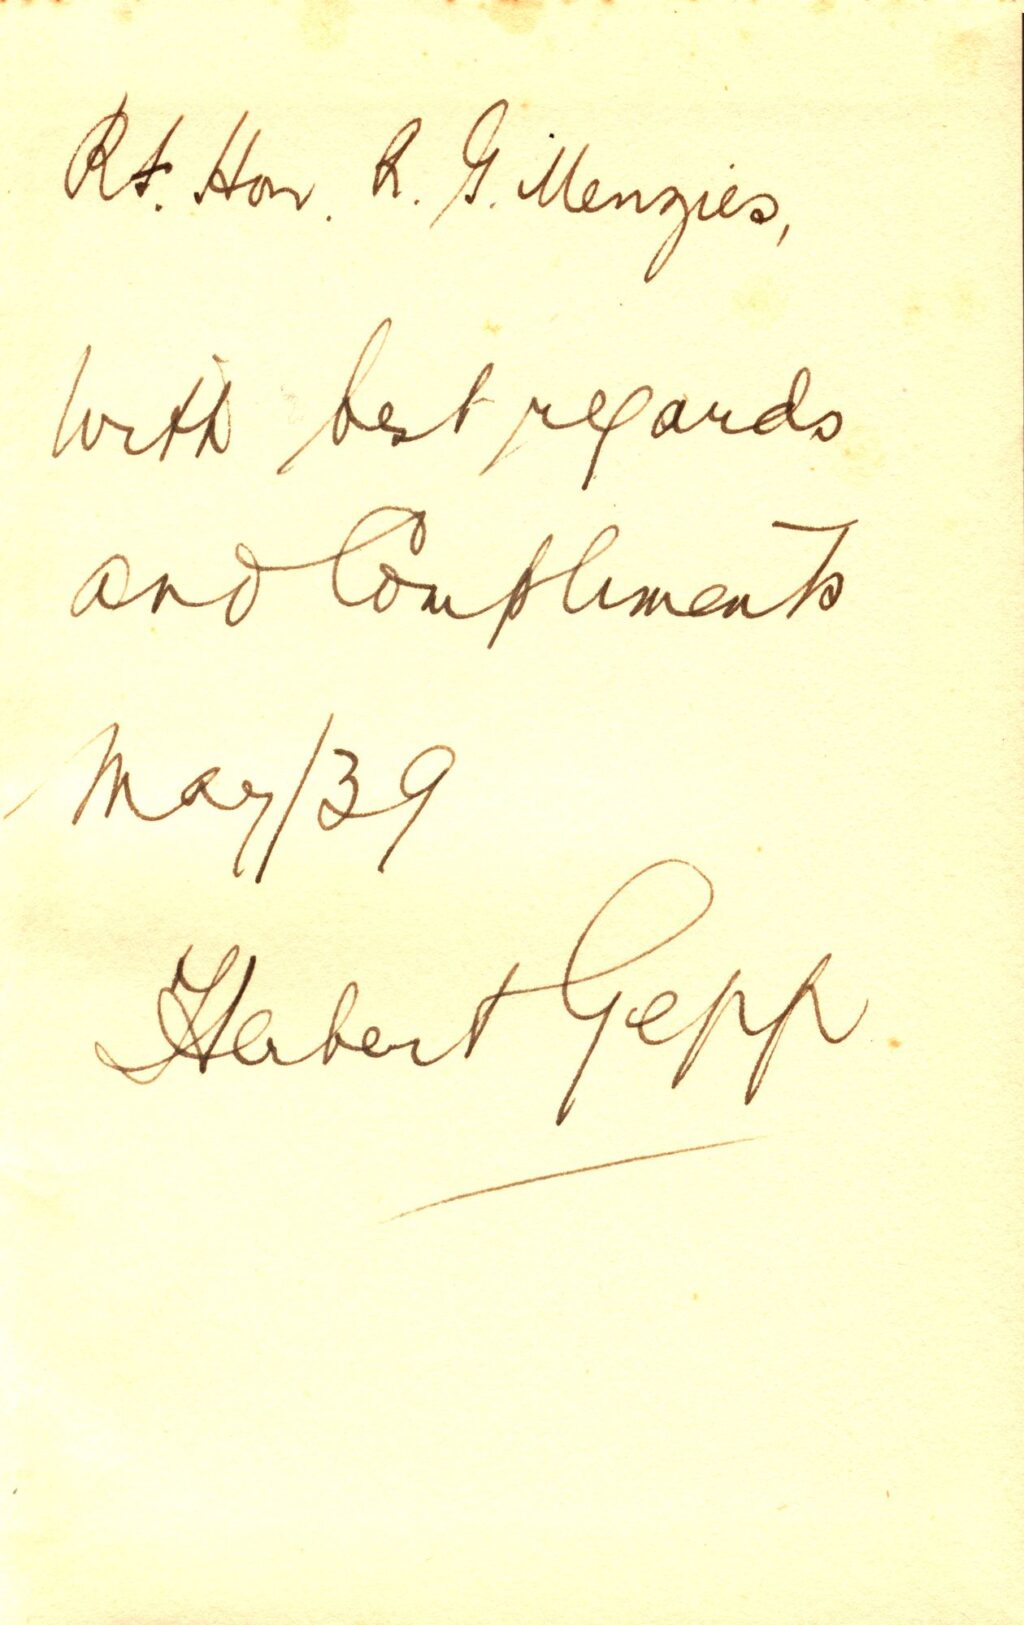 Rt. Hon. R. G. Menzies,
With best regards
and Compliments
May/39
Herbert Gepp